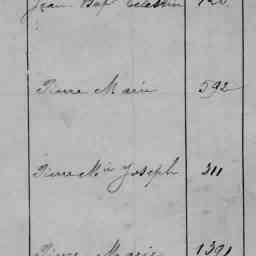 Jean Bapt Célestin 120
Pierre Marie 592
Pierre Mie Joseph 311
Pierre Marie 1391